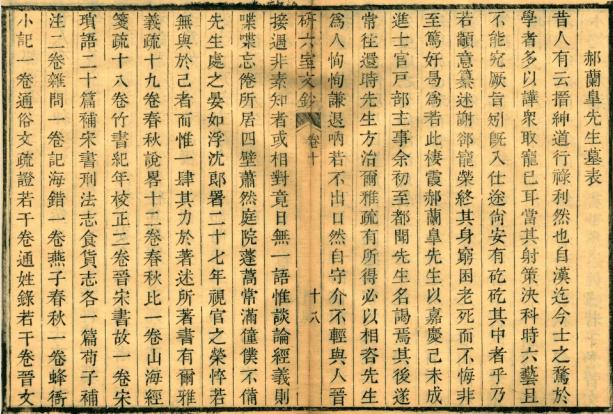 郝蘭皐先生墓表
昔人有云搢紳道行祿利然也自漢迄今士之騖於
學者多以譁衆取寵已耳當其射策決科時六藝且
不能究厥言矧旣入仕途尙安有矻矻其中者乎乃
若顓意纂述謝郤寵榮終其身窮困老死而不悔非
至篤好曷爲若此棲霞郝蘭皐先生以嘉慶己未成
進士官戸部主事余初至都聞先生名謁焉其後遂
常往還時先生方治爾雅疏有所得必以相咨先生
爲人恂恂謙退吶若不出口然自守介不輕與人晉
研六室文鈔
卷十
十八
接遇非素知者或相對竟日無一語惟談論經義則
喋喋忘倦所居四壁蕭然庭院蓬蒿常滿僮僕不備
先生處之晏如浮沈郞署二十七年視官之榮悴若
無與於己者而惟一肆其力於著述所著書有爾雅
義疏十九卷春秋說畧十二卷春秋比一卷山海經
箋疏十八卷竹書紀年校正三卷晉宋書故一卷宋
瑣語二十篇補宋書刑法志食貨志各一篇荀子補
注二卷雜問一卷記海錯一卷燕子春秋一卷蜂衙
小記一卷通俗文疏證若干卷通姓錄若干卷晉文